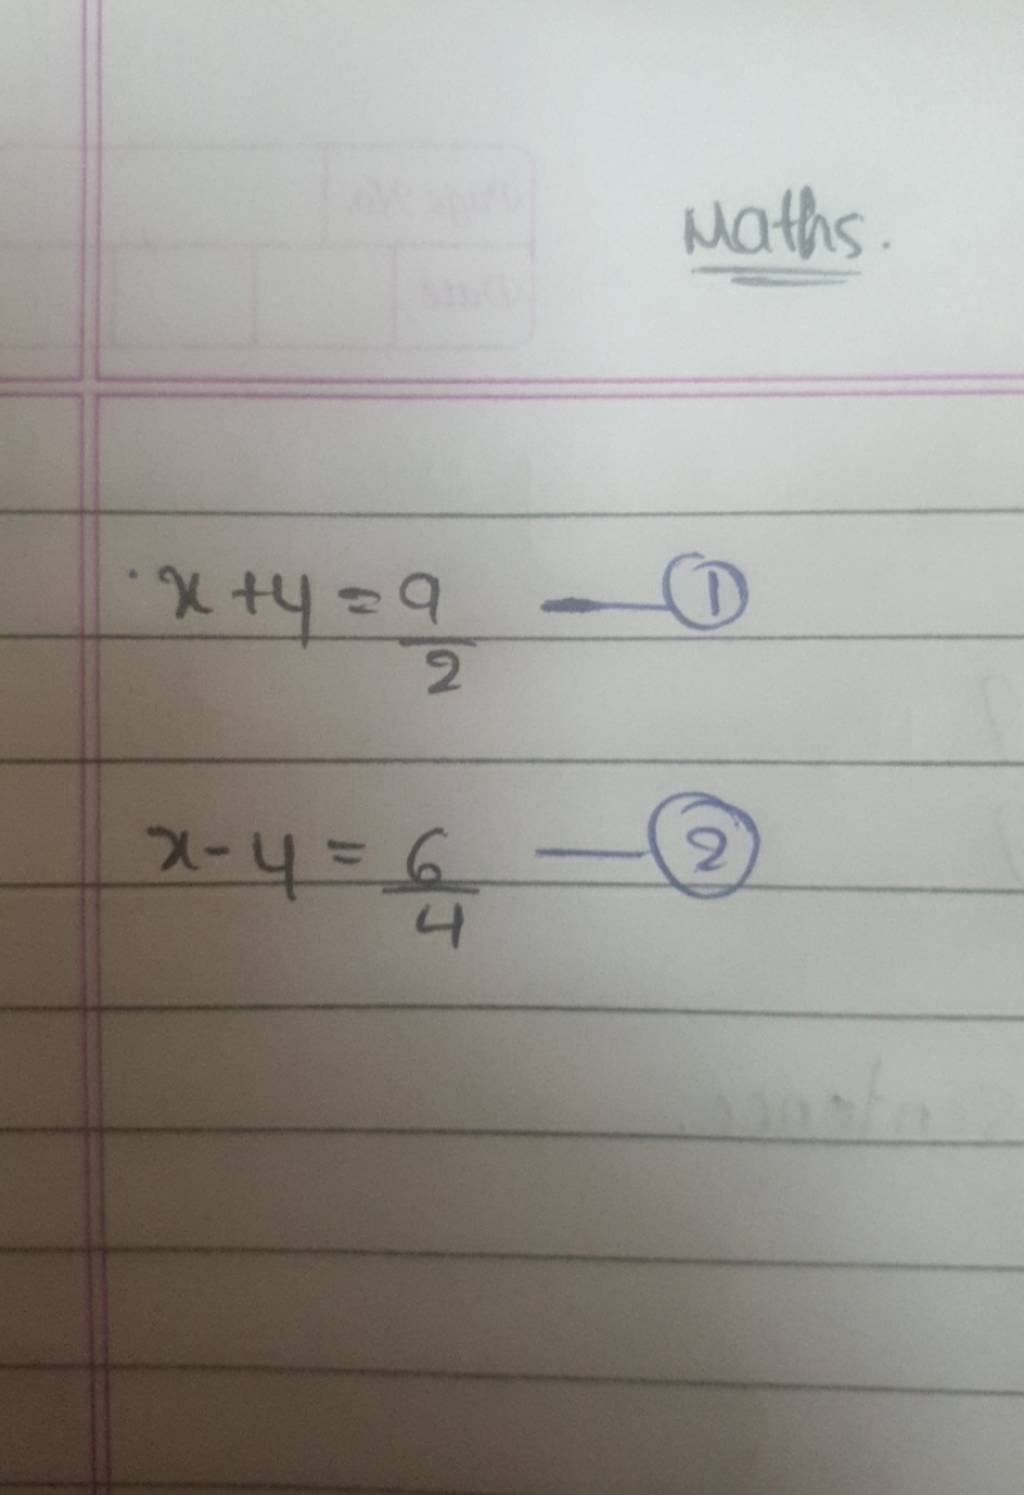 Maths.
x + y = 9/2 — ①
x - y = 6/4 — ②